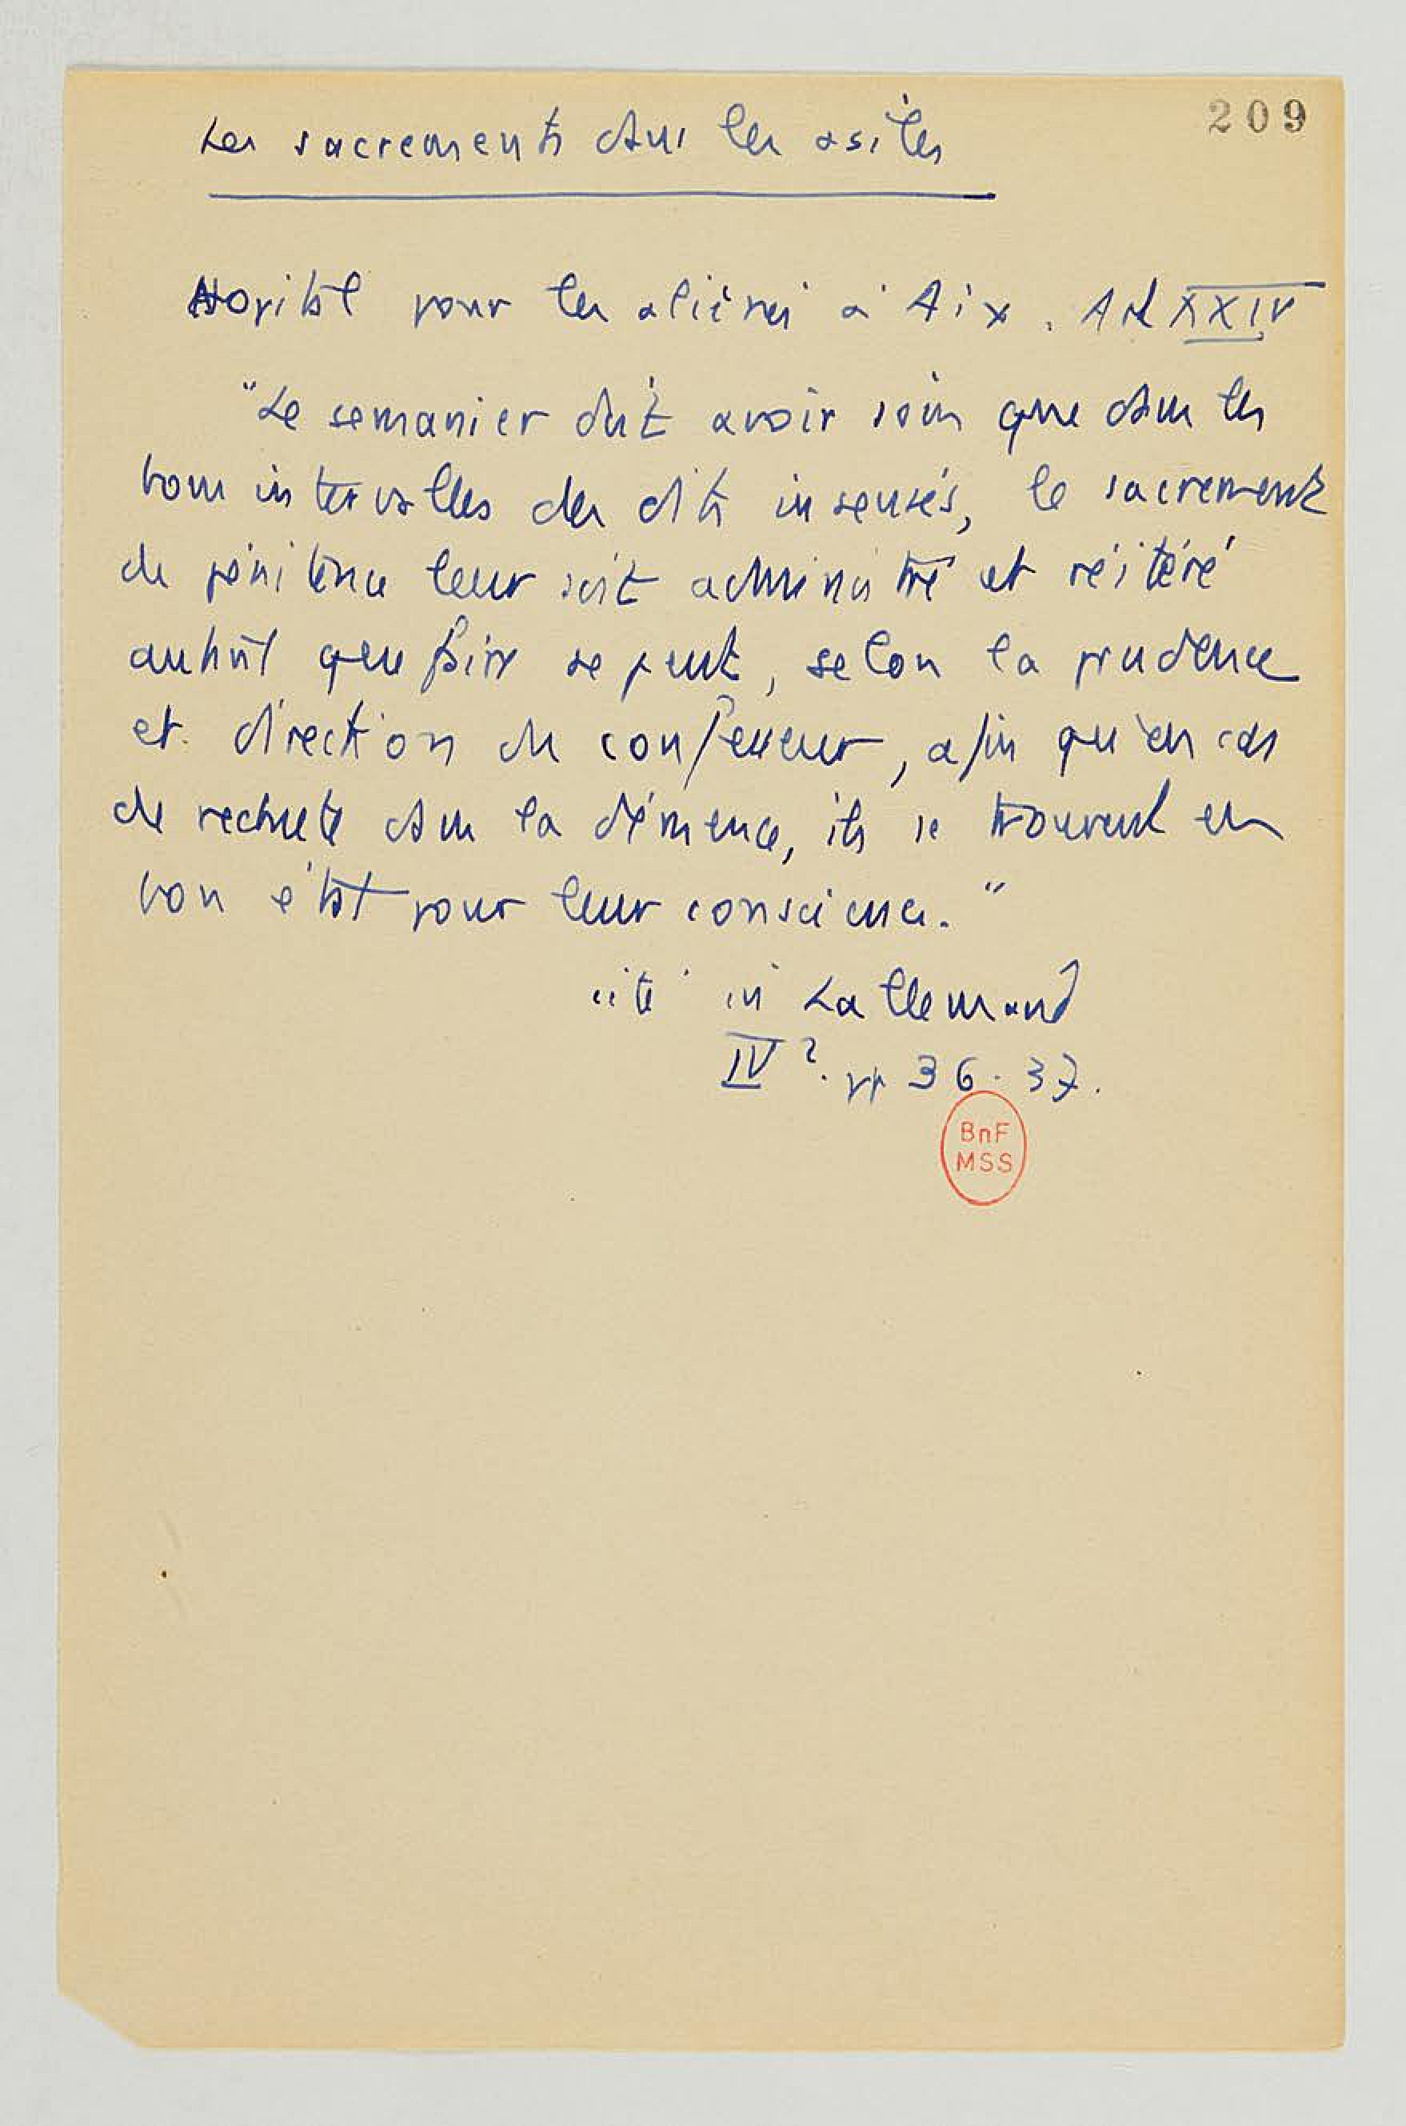 209
Les sacrements dans les asiles
Hôpital pour les aliénés à Aix. Art XXIV
"Le semanier doit avoir soin que dans les
bons intervalles des dits insensés, le sacrement
de pénitence leur soit administré et réitéré
autant que faire se peut, selon la prudence
et direction du confesseur, afin qu'en cas
de rechute dans la démence, ils se trouvent en
bon état pour leur conscience."
cité in Lallemand
IV 2. pp 36-37.
BnF
MSS